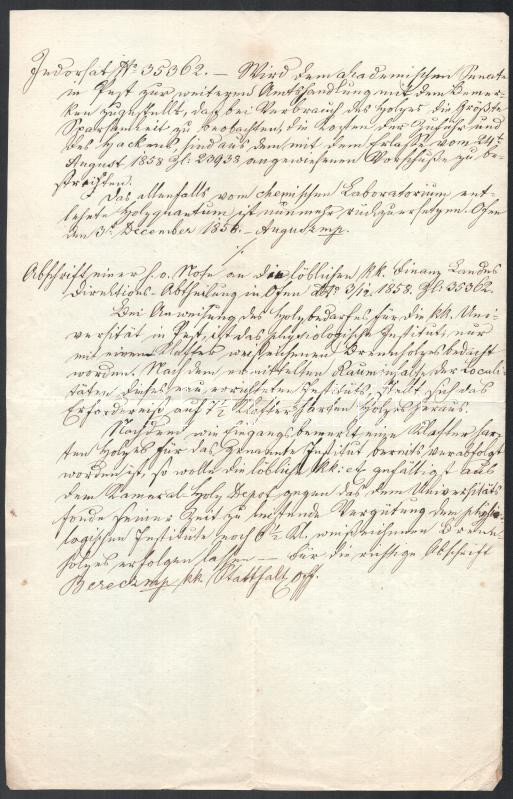 Indorsat No 35362. — Wird dem akademischen Senate
in Pest zur weiteren Amtshandlung mit dem Bemer-
ken zugestellt, daß bei Verbrauch des Holzes, die Größte
Sparsamkeit zu beobachten, die Kosten der Zufuhr und
des Hackens sind aus dem, mit dem Erlaße vom 24t.
August 1858 Zl: 20938 angewiesenen Vorschuße zu be-
streitten.
Das allenfalls vom chemischen Laboratorium ent-
lehnte Holzquantum ist nunmehr rückzuersetzen. Ofen
den 3t. December 1858. — Augusz mp.
Abschrift einer h. o. Note an die löblichen kk. Finanz Landes
Direktions-Abtheilung in Ofen dto. 3/12. 1858. Zl: 35362.
Bei Anweisung des Holzbedarfes für die kk. Uni-
versität in Pest, ist das physiologische Institut, nur
mit einem Klafter Brennholzes bedacht
worden. Nach dem ermittelten Rauminhalte der Locali-
täten dieses neu errichteten Instituts, stellt sich das
Erforderniß auf 7½ Klafter harten Holzes heraus.
Nachdem, wie Eingangs bemerkt eine Klafter har-
ten Holzes für das genannte Institut bereits verabfolgt
worden ist, so wolle die löbliche kk: gefälligst aus
dem Kameral Holz Depot gegen das dem Universitäts
fonde seiner Zeit zu leistende Vergütung dem physio-
logischen Institute noch 6½ Kl. Brenn-
holzes erfolgen lassen — Für die richtige Abschrift
Berecz mp kk. Statthalt. Off.